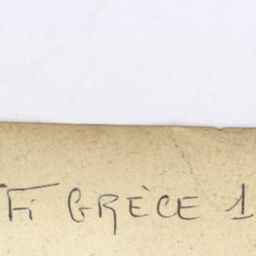 Fi GRÈCE 1